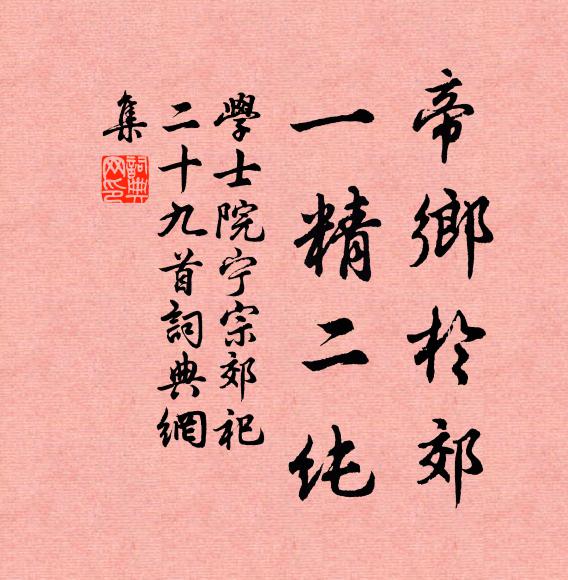 帝鄉於郊
一精二纯
學士院宁宗郊祀
二十九首詞典網
集
詞典网印